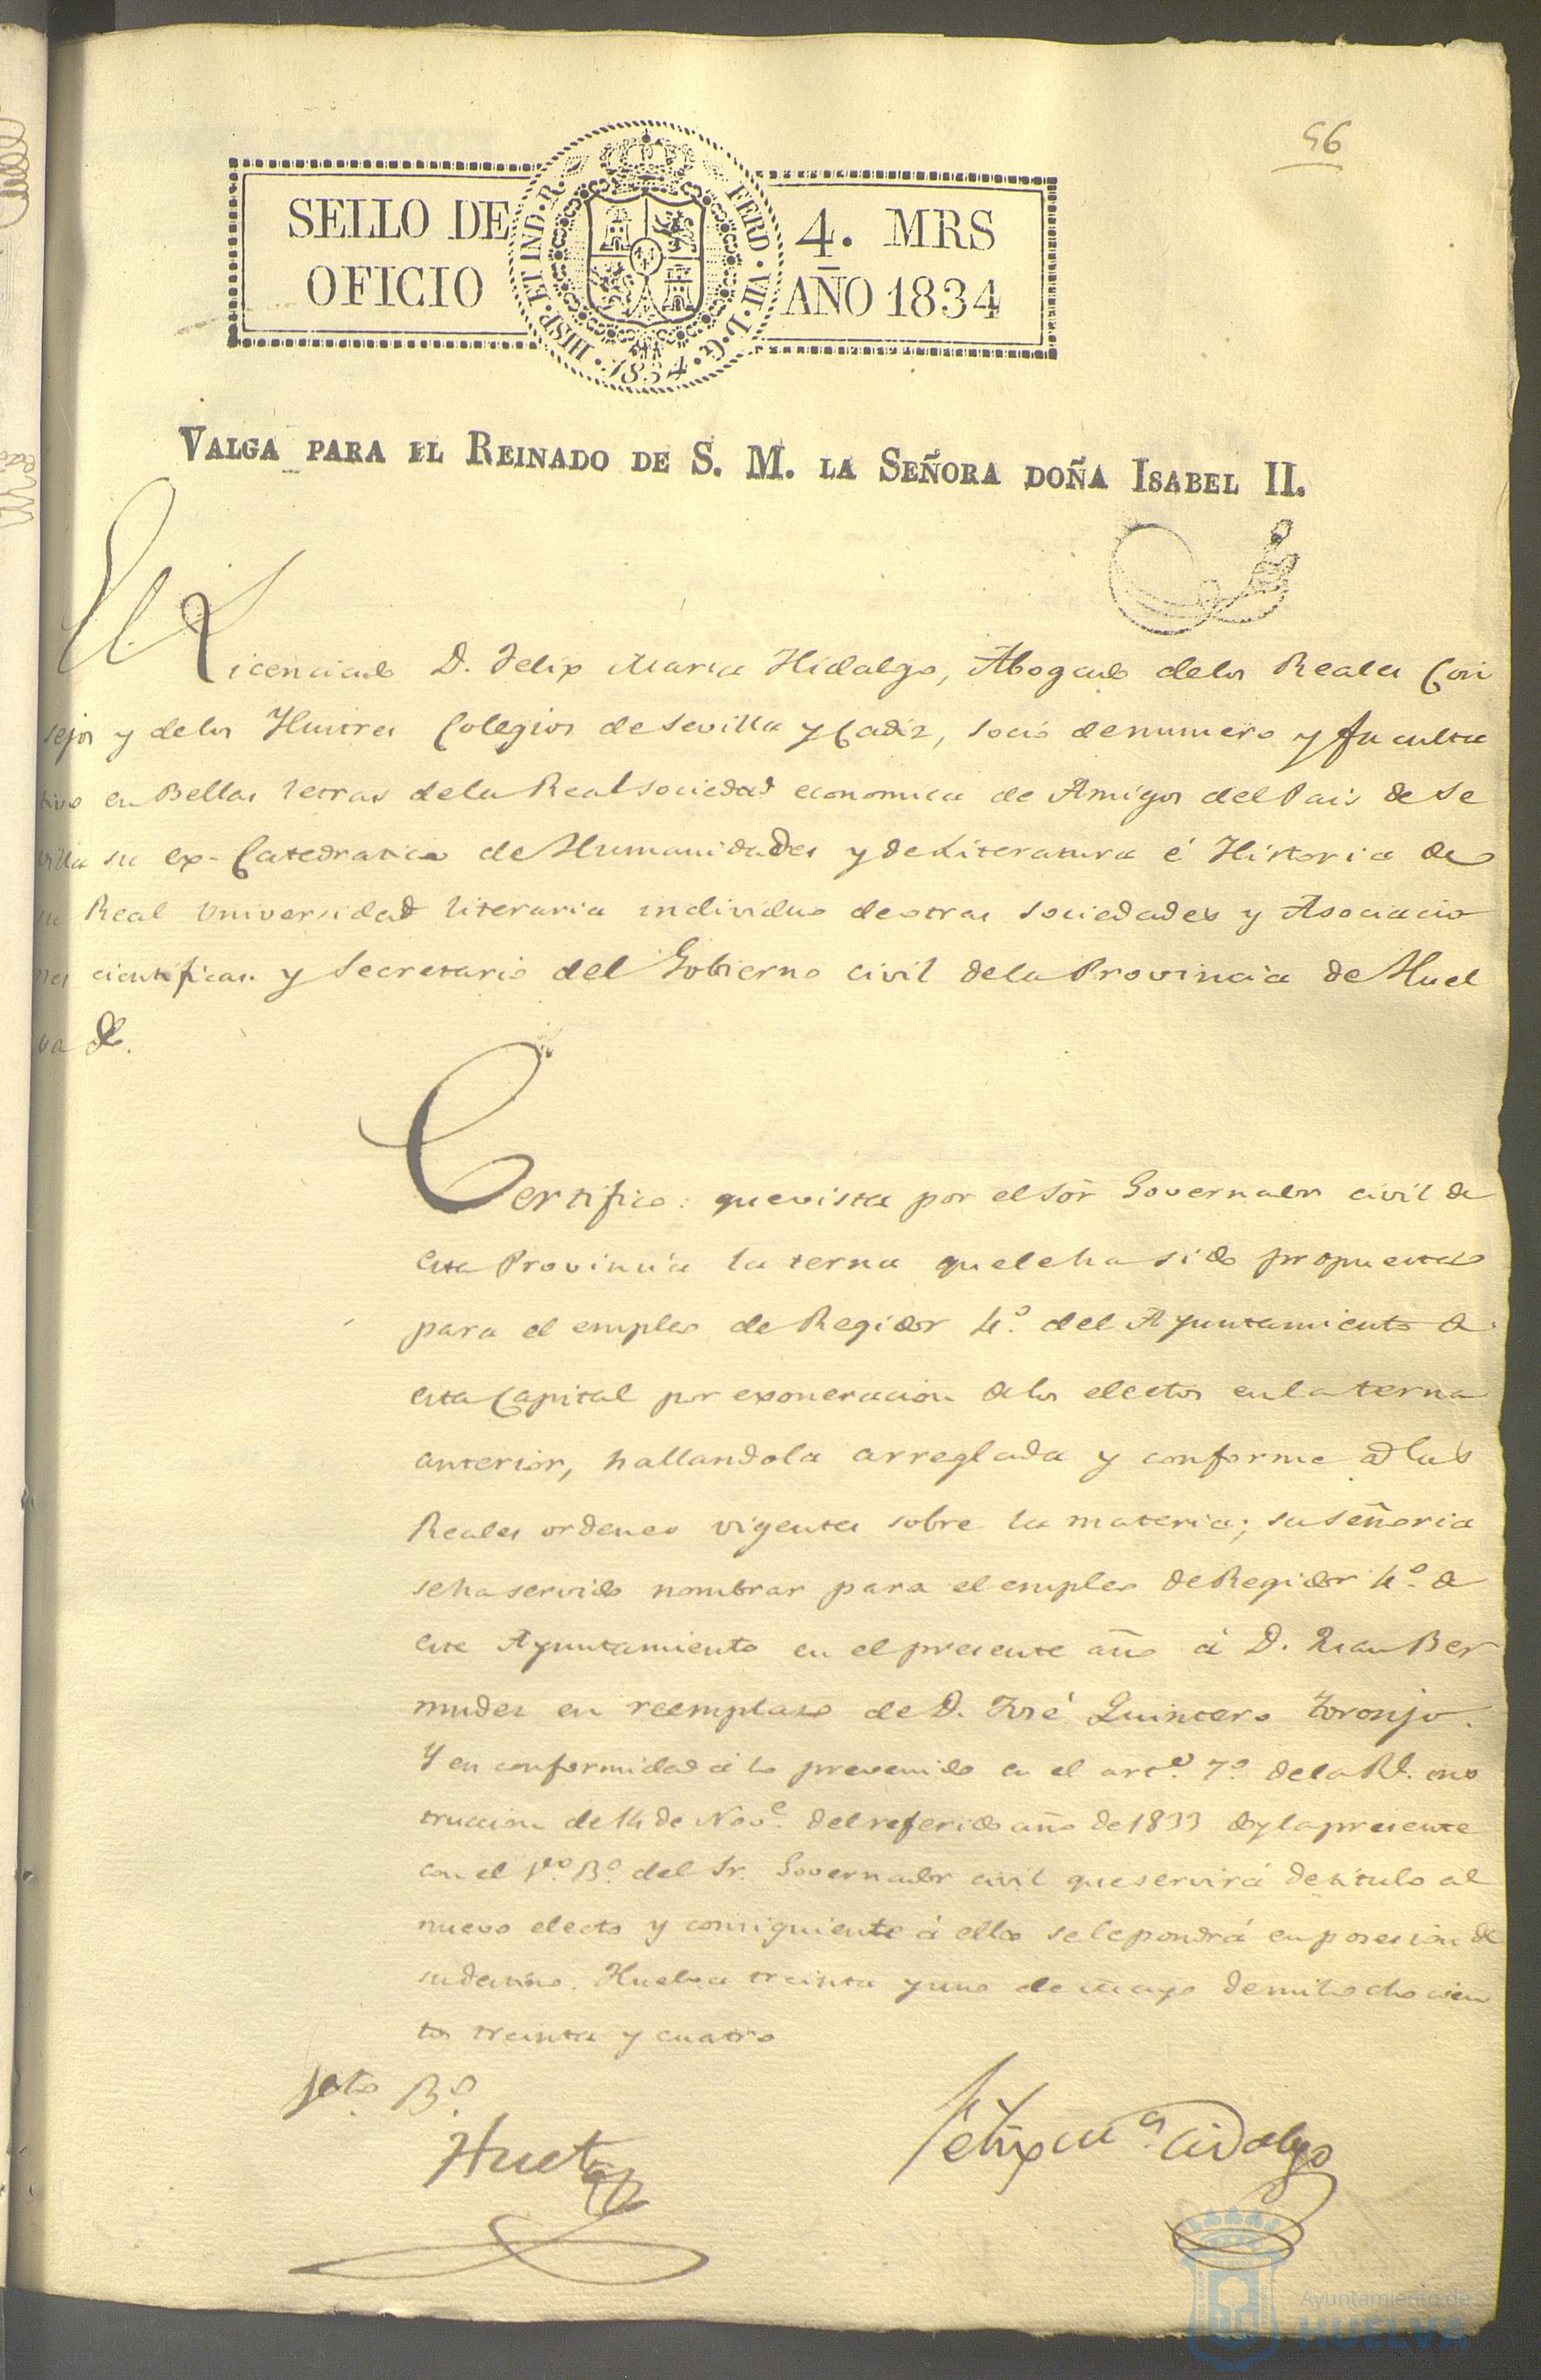 56
SELLO DE
OFICIO
HISP. ET IND. R.
FERD. VII. D. G.
1834
4. MRS
AÑO 1834
VALGA PARA EL REINADO DE S. M. LA SEÑORA DOÑA ISABEL II.
El Licenciado D. Felix Maria Hidalgo, Abogado delos Reales Con
sejos y delos Ilustres Colegios de Sevilla y Cadiz, socio denumero y faculta
tivo en Bellas letras dela Real sociedad economica de Amigos del Pais de Se
villa su ex-Catedratico de Humanidades y de Literatura é Historia de
su Real Universidad literaria individuo deotras sociedades y Asociacio
nes cientificas y Secretario del Gobierno civil dela Provincia de Huel
va &.
Certifico: quevista por el Sór Governador civil de
esta Provincia la terna quelehasido propuesta
para el empleo de Regidor 4.º del Ayuntamiento de
esta Capital por exoneracion delos electos enla terna
anterior, hallandola arreglada y conforme á las
Reales ordenes vigentes sobre la materia; su señoria
sehaservido nombrar para el empleo de Regidor 4.º de
este Ayuntamiento en el presente año á D. Juan Ber
mudes en reemplaso de D. José Quintero Toronjo.
Y en conformidad á lo prevenido en el art.º 7.º dela Rl. ins
truccion de 14 de Nov.e delreferido año de 1833 doy la presente
con el V.º B.º del Sr. Governador civil que servirá detitulo al
nuevo electo y consiguiente á ello sele pondrá en posesion de
sudestino. Huelva treinta yuno de Mayo demil ochocien
tos treinta y cuatro
Visto B.º
Huet
Felix M.ª Hidalgo
Ayuntamiento de
HUELVA